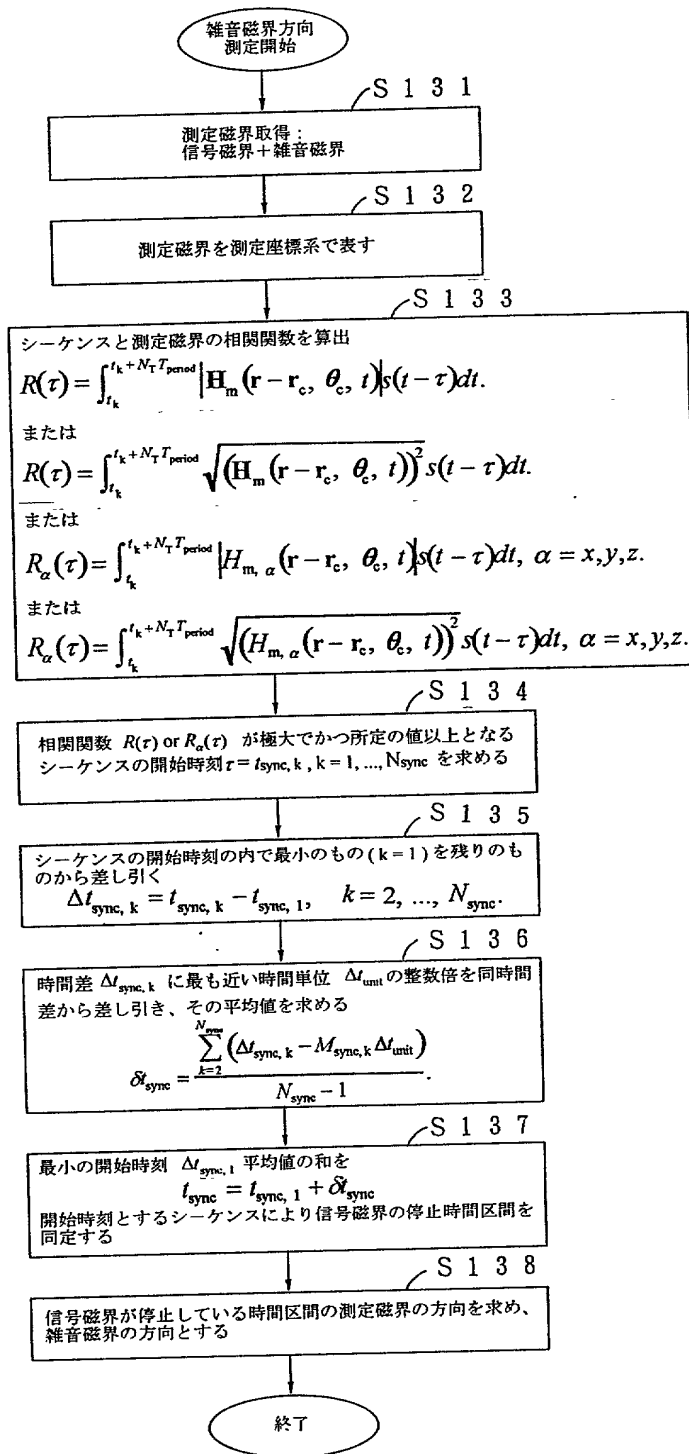 雑音磁界方向
測定開始
S131
測定磁界取得：
信号磁界＋雑音磁界
S132
測定磁界を測定座標系で表す
S133
シーケンスと測定磁界の相関関数を算出
R(τ) = ∫_{t_k}^{t_k + N_T T_period} |H_m(r − r_c, θ_c, t)| s(t − τ)dt.
または
R(τ) = ∫_{t_k}^{t_k + N_T T_period} √((H_m(r − r_c, θ_c, t))^2) s(t − τ)dt.
または
R_α(τ) = ∫_{t_k}^{t_k + N_T T_period} |H_{m, α}(r − r_c, θ_c, t)| s(t − τ)dt, α = x,y,z.
または
R_α(τ) = ∫_{t_k}^{t_k + N_T T_period} √((H_{m, α}(r − r_c, θ_c, t))^2) s(t − τ)dt, α = x,y,z.
S134
相関関数 R(τ) or R_α(τ) が極大でかつ所定の値以上となる
シーケンスの開始時刻 τ = t_{sync, k} , k = 1, ..., N_sync を求める
S135
シーケンスの開始時刻の内で最小のもの ( k = 1 ) を残りのも
のから差し引く
Δt_{sync, k} = t_{sync, k} − t_{sync, 1}, k = 2, ..., N_sync.
S136
時間差 Δt_{sync, k} に最も近い時間単位 Δt_unit の整数倍を同時間
差から差し引き、その平均値を求める
δt_sync = ∑_{k=2}^{N_sync} (Δt_{sync, k} − M_{sync, k} Δt_unit) / (N_sync − 1).
S137
最小の開始時刻 Δt_{sync, 1} 平均値の和を
t_sync = t_{sync, 1} + δt_sync
開始時刻とするシーケンスにより信号磁界の停止時間区間を
同定する
S138
信号磁界が停止している時間区間の測定磁界の方向を求め、
雑音磁界の方向とする
終了